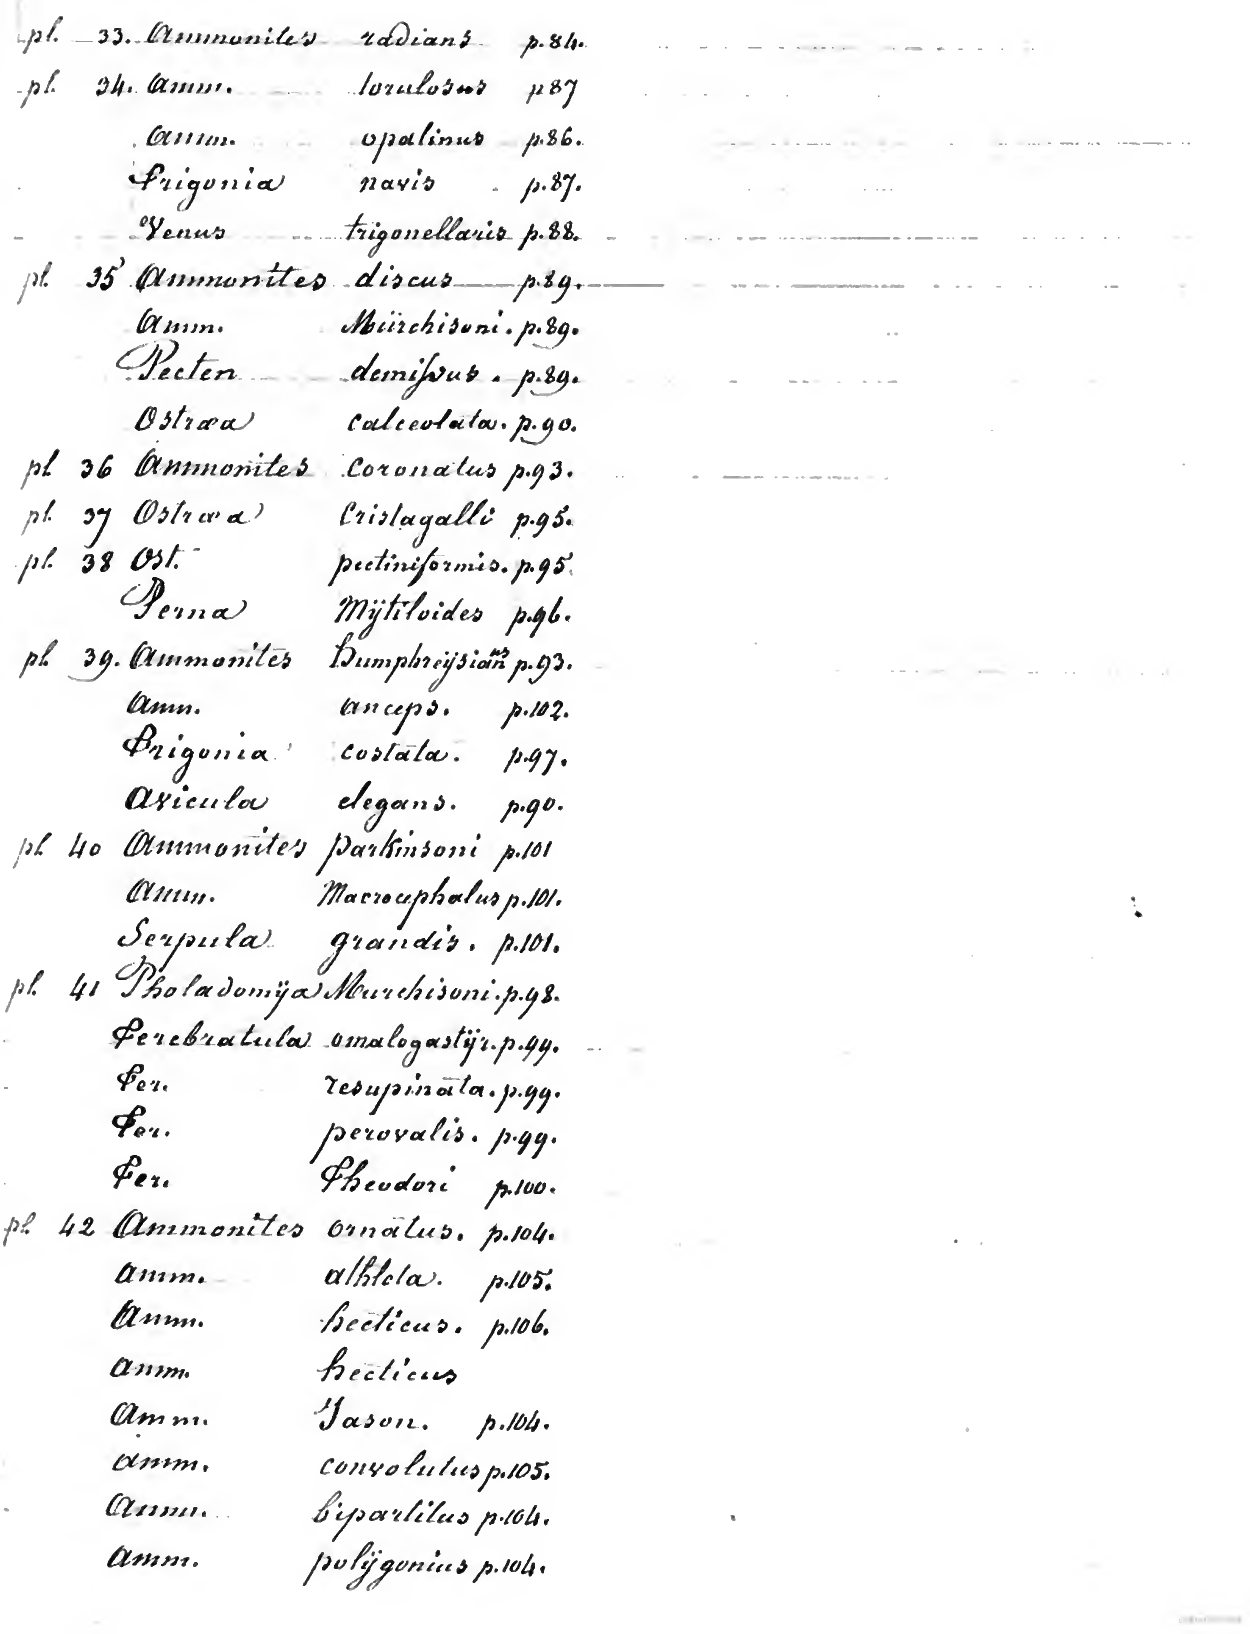 pl. 33. Ammonites radians p.84.
pl. 34. Amm. torulosus p87
Amm. opalinus p.86.
Trigonia navis p.87.
Venus trigonellaris p.88.
pl. 35 Ammonites discus p.89.
Amm. Murchisoni. p.89.
Pecten demiſsus. p.89.
Ostræa calceolata. p.90.
pl 36 Ammonites Coronatus p.93.
pl. 37 Ostræa Cristagalli p.95.
pl. 38 Ost. pectiniformis. p.95.
Perna Mÿtiloides p.96.
pl. 39. Ammonites Humphreÿsianus p.93.
Amm. anceps. p.102.
Trigonia costata. p.97.
Avicula elegans. p.90.
pl. 40 Ammonites Parkinsoni p.101
Amm. Macrocephalus p.101.
Serpula grandis. p.101.
pl. 41 Pholadomÿa Murchisoni. p.98.
Terebratula omalogastÿr. p.99.
Ter. resupinata. p.99.
Ter. perovalis. p.99.
Ter. Theodori p.100.
pl. 42 Ammonites ornatus. p.104.
Amm. athleta. p.105.
Amm. hecticus. p.106.
Amm. hecticus
Amm. Jason. p.104.
Amm. convolutus p.105.
Amm. bipartitus p.104.
Amm. polÿgonius p.104.